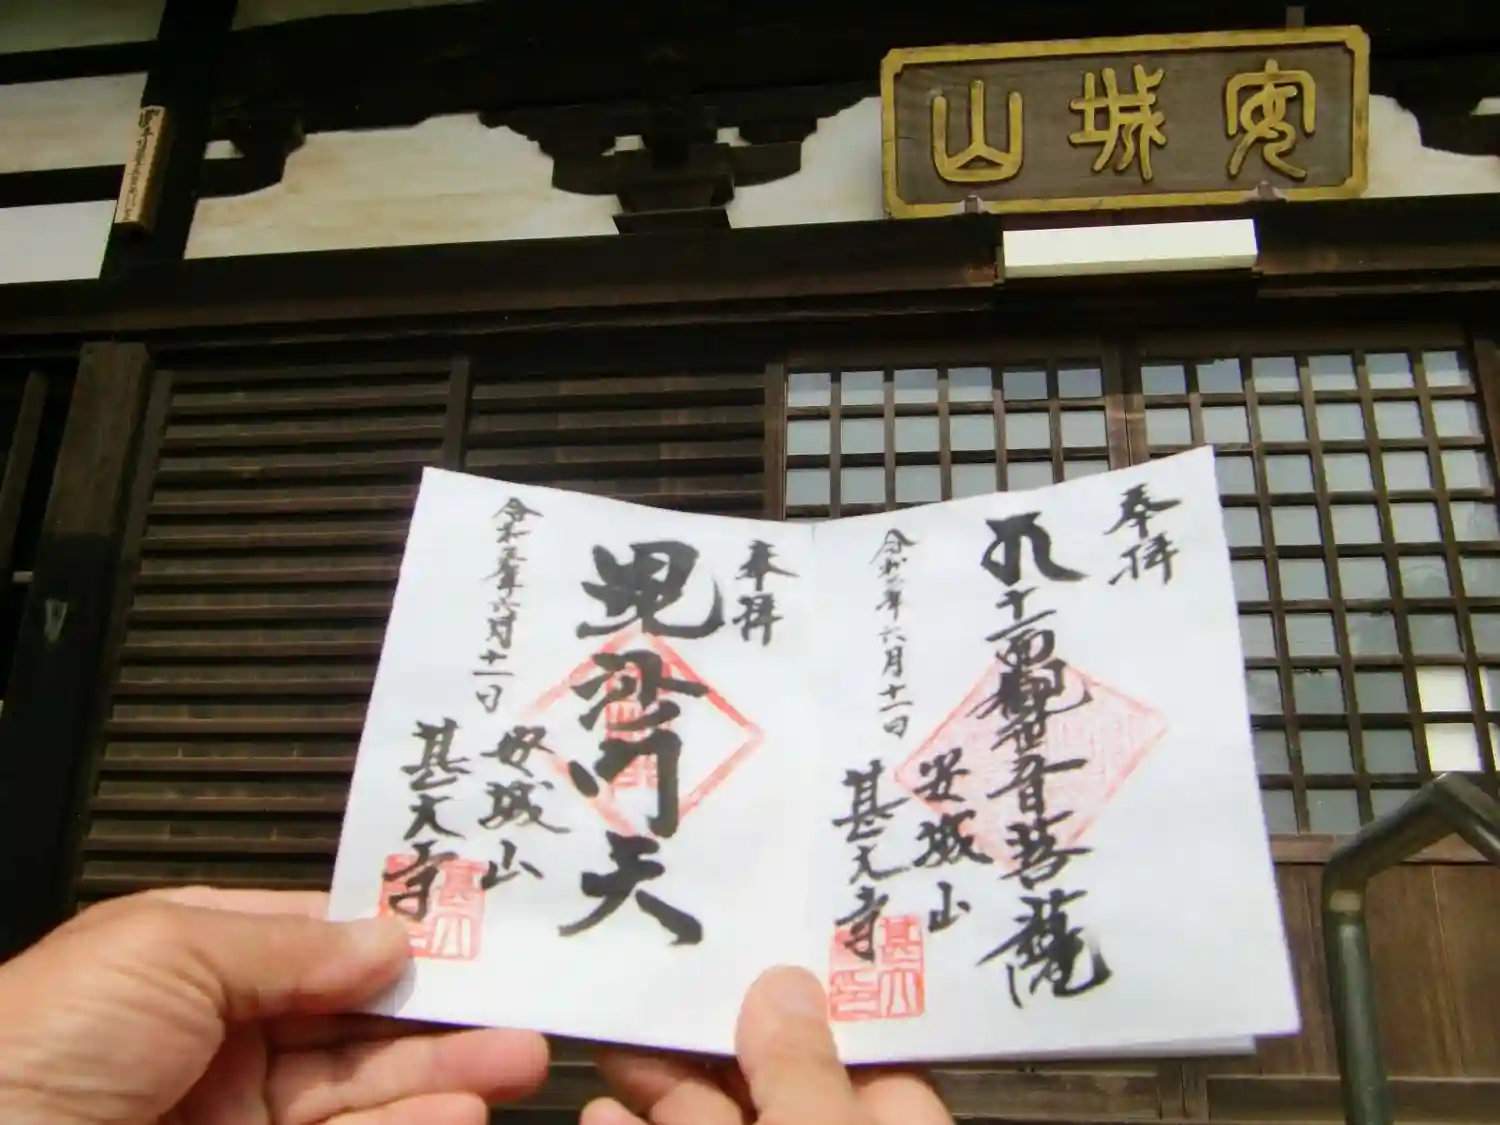 安城山
奉拝
十一面観世音菩薩
安城山
甚大寺
奉拝
毘沙門天
令和五年六月十一日
安城山
甚大寺